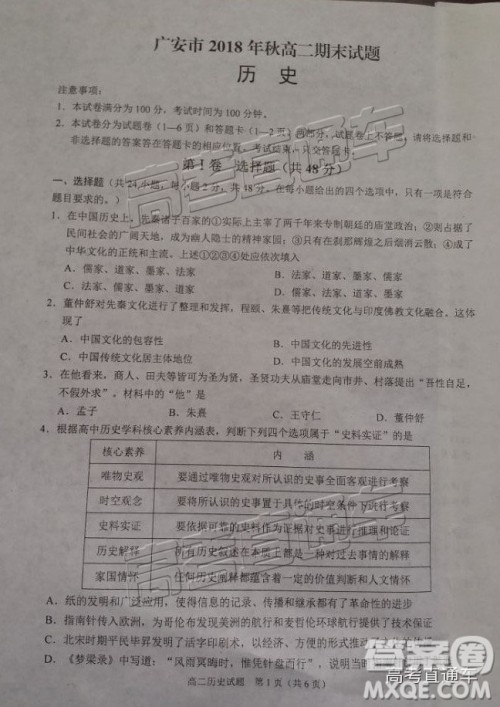 广安市 2018 年秋高二期末试题
历 史
注意事项：
1．本试卷满分为 100 分，考试时间为 100 分钟。
2．本试卷分为试题卷（1—6 页）和答题卡（1—2 页）两部分。试题卷上不答题，请将选择题和
非选择题的答案答在答题卡的相应位置。考试结束，只交答题卡。
第Ⅰ卷 选择题（共 48 分）
一、选择题（共 24 小题，每小题 2 分，共 48 分，在每小题给出的四个选项中，只有一项是符合
题目要求的。）
1．在中国历史上，先秦诸子百家的①实际上主宰了两千年来专制朝廷的庙堂政治；②则占据了
民间社会的广阔天地，成为幽人隐士的精神家园；③只有在刹那辉煌之后烟消云散；④成了
中华文化的正统和主流。上述①②③④处应依次填入
A．儒家、道家、墨家、法家 B．法家、道家、墨家、儒家
C．法家、墨家、道家、儒家 D．儒家、墨家、道家、法家
2．董仲舒对先秦文化进行了整理和发挥，程颐、朱熹等把中国传统文化与印度佛教文化融合。这体
现了
A．中国文化的包容性 B．中国文化的先进性
C．中国传统文化居主体地位 D．中国文化的发展空前成熟
3．在他看来，商人、田夫等皆可为圣为贤，圣贤功夫从庙堂走向市井、村落提出“吾性自足，
不假外求”。材料中的“他”是
A．孟子 B．朱熹 C．王守仁 D．董仲舒
4．根据高中历史学科核心素养内涵表，判断下列四个选项属于“史料实证”的是
核心素养 内 涵
唯物史观 要通过唯物史观对所认识的史事全面客观进行考察
时空观念 要将所认识的史事置于具体的时空条件下进行考察
史料实证 要依据可靠的史料作为证据对史事进行推理和论证
历史解释 所有历史叙述在本质上都是一种对过去事情的解释
家国情怀 任何历史阐释都蕴含着一定的价值判断和人文情怀
A．纸的发明和广泛应用，使信息的记录、传播和继承都有了革命性的进步
B．指南针传入欧洲，为哥伦布发现美洲的航行和麦哲伦环球航行提供了技术保证
C．北宋时期平民毕昇发明了活字印刷术，以经济、方便的
D．《梦粱录》中写道：“风雨冥晦时，惟凭针盘而行”，说明
高二历史试题 第 1 页（共 6 页）
高考直通车
高考直通车
高考直通车
答案圈
高考直通车
MXQE.COM